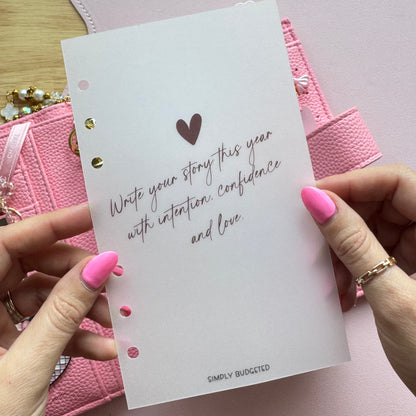 Write your story this year
with intention, confidence
and love.
SIMPLY BUDGETED